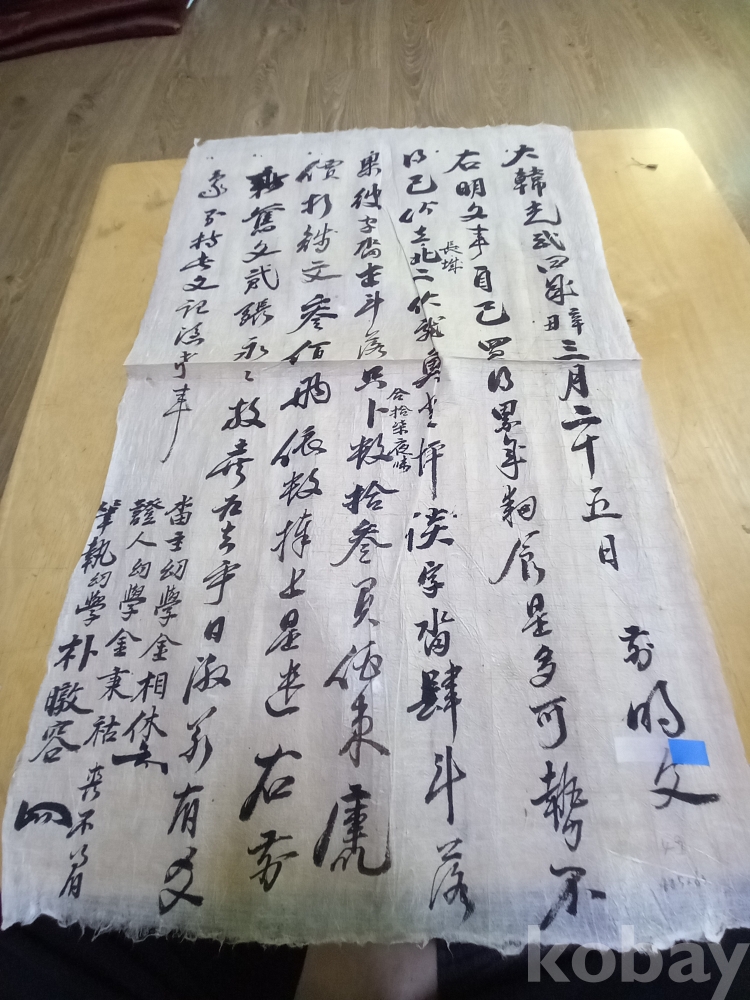 大韓光武四年辛丑三月二十五日 前明文
右明文事自己買得累年耕食是多可勢不
得已伏在北二作龍鼻坪談字畓肆斗落
長城
果彼字畓壹斗落只卜數拾參負束庫
合拾柒夜味
價折錢文參佰兩依數捧上是遣右前
新舊文貳張永々放賣爲去乎日後若有爻
象則持此文記憑考事
畓主幼學金相休
證人幼學金秉祜 喪不着
筆執幼學朴暾容
kobay